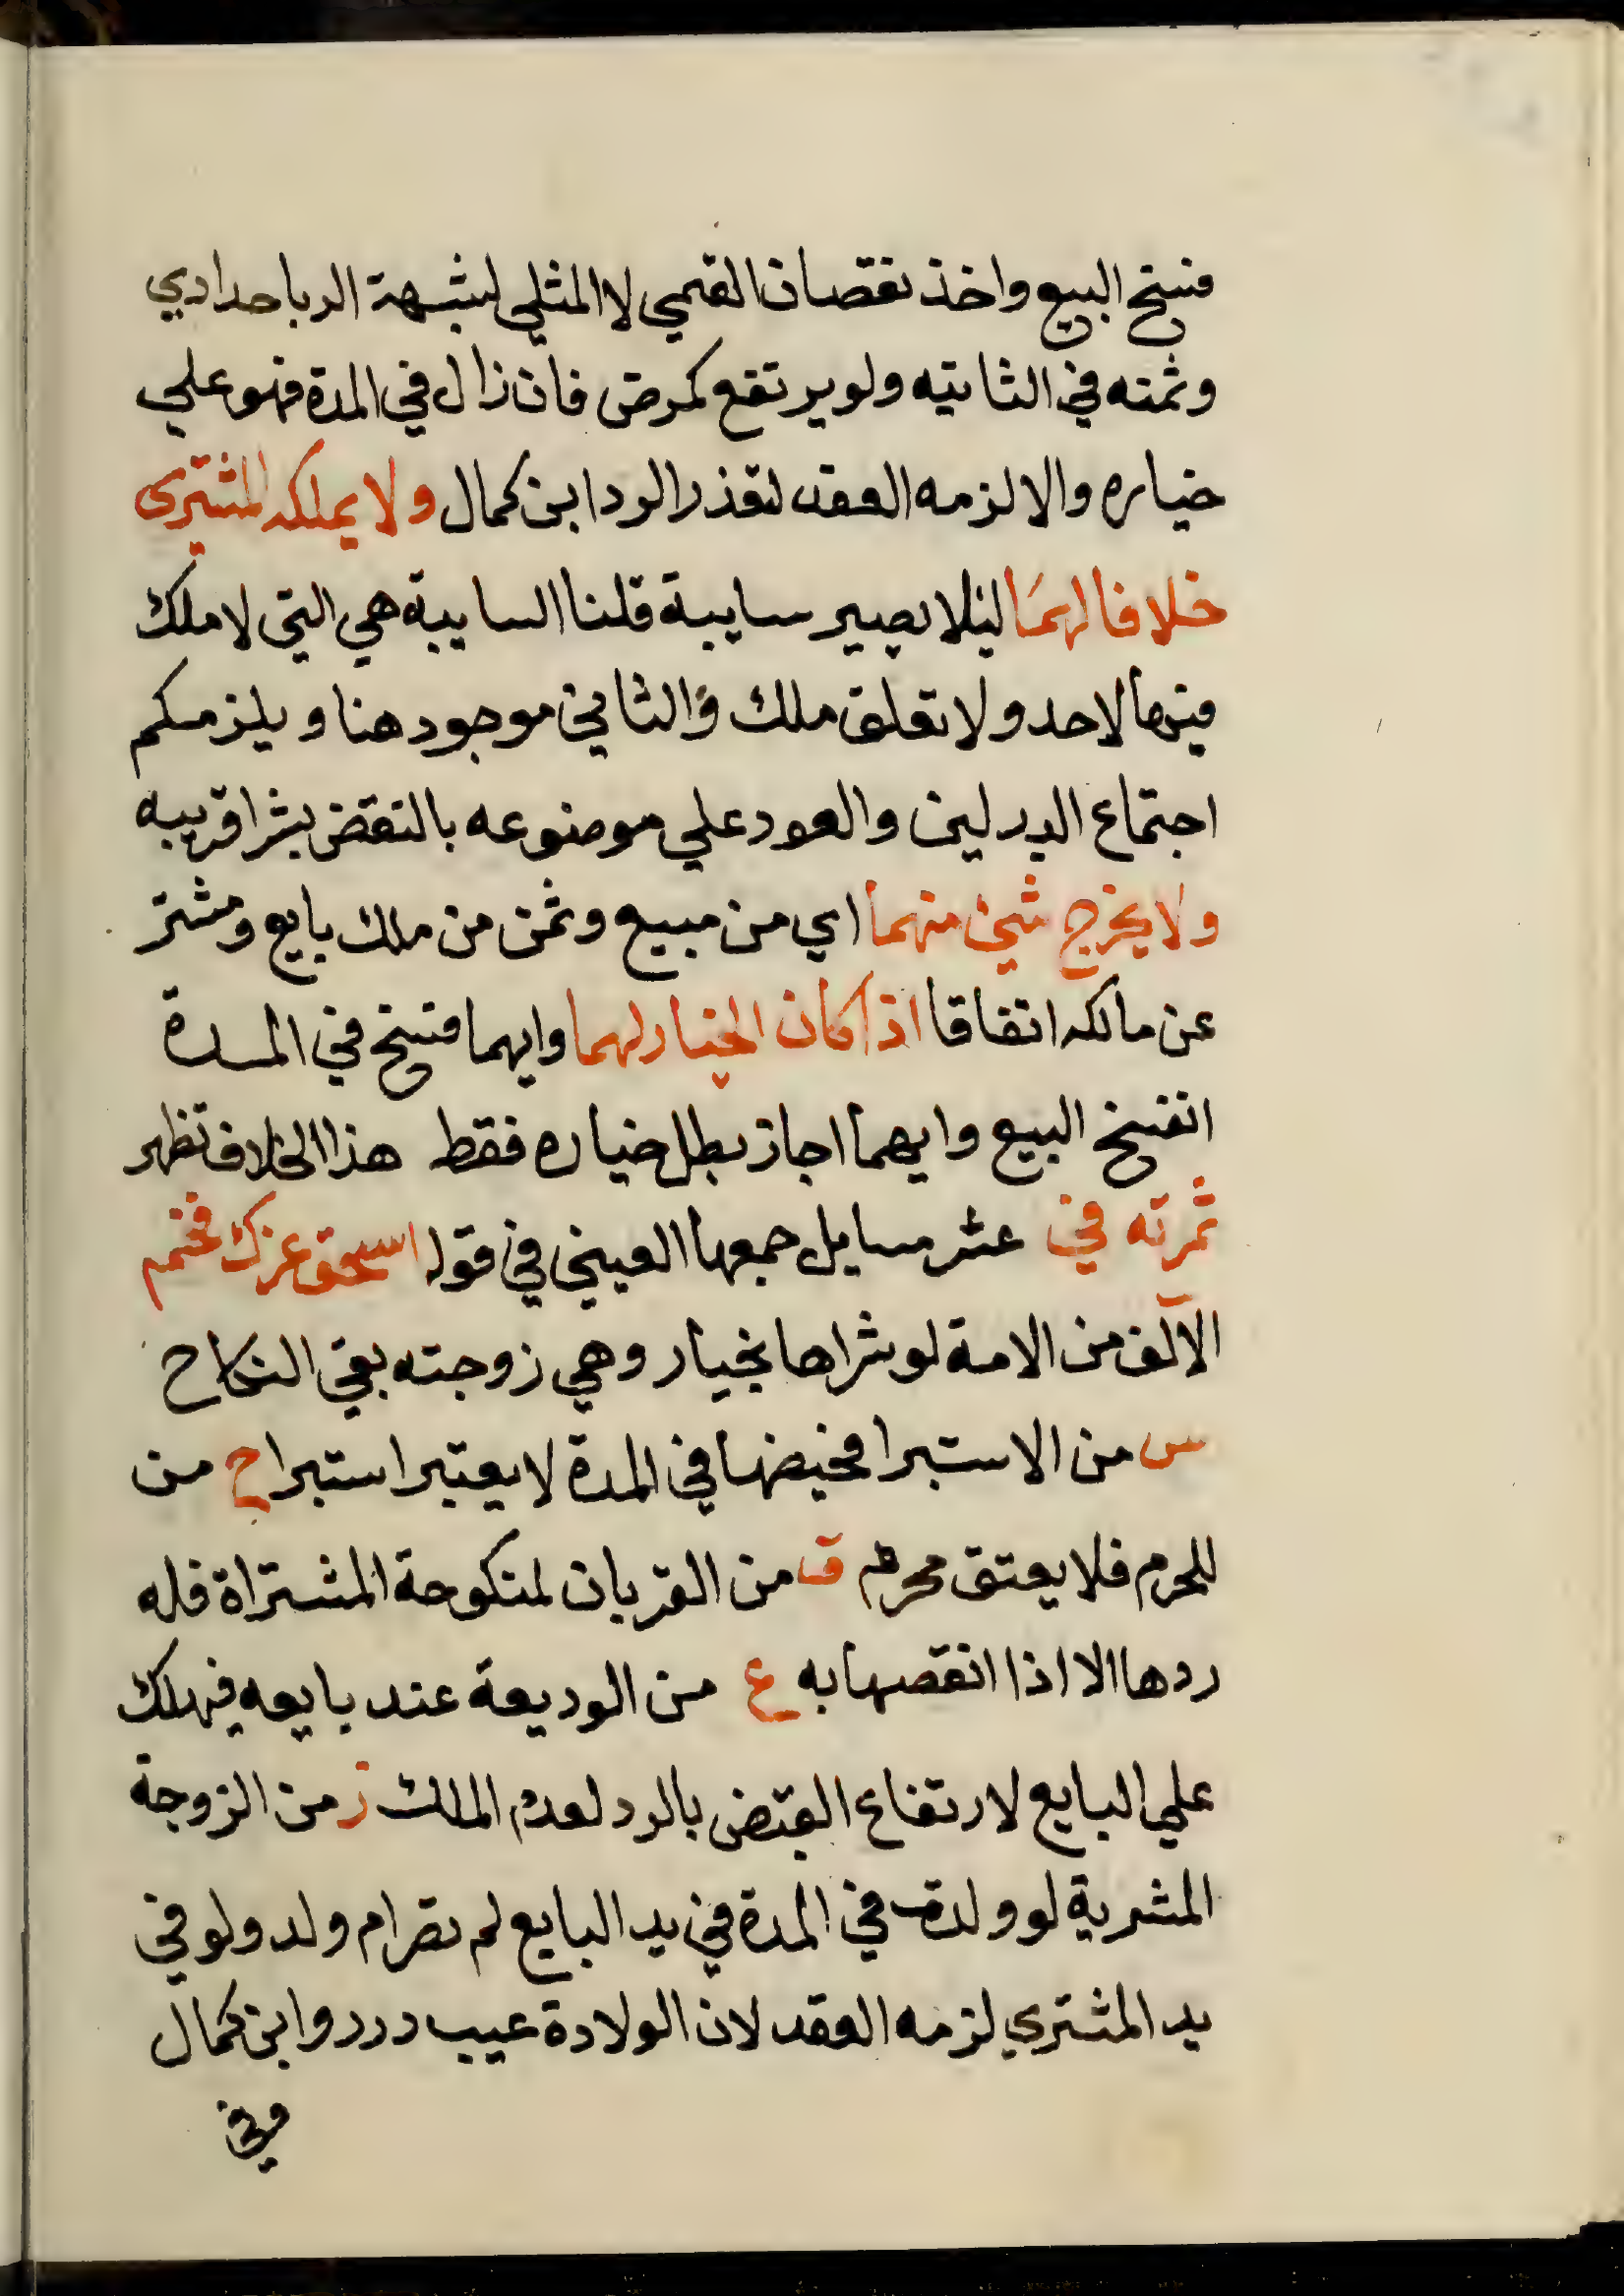 فسخ البيع واخذ نقصان القيمي لا المثلي لشبهة الربا حدادي
وثمنه في الثانيه ولو يرتفع كمرض فان زال في المدة فهو علي
خياره والا لزمه العقد لتعذر الرد ابن كمال ولا يملكه المشترى
خلافا لهما ليلا يصير سايبة قلنا السايبة هي التي لا ملك
فيها لاحد ولا تعلق ملك والثاني موجود هنا ويلزمكم
اجتماع البدلين والعود علي موضوعه بالنقض بشرا قريبه
ولا يخرج شيئ منهما اي من مبيع وثمن من ملك بايع ومشتر
عن مالكه اتفاقا اذا كان الخيار لهما وايهما فسخ في المدة
انفسخ البيع وايهما اجاز بطل خياره فقط هذا الخلاف تظهر
ثمرته في عشر مسايل جمعها العيني في قوله اسحق عزك فخم
الالف من الامة لو شراها بخيار وهي زوجته بقي النكاح
س من الاستبرا فحيضها في المدة لا يعتبر استبرا ح من
المحرم فلا يعتق محرمه ق من القربان لمنكوحة المشتراة فله
ردها الا اذا انقصها به ع من الوديعة عند بايعه فيهلك
علي البايع لارتفاع القبض بالرد لعدم الملك ز من الزوجة
المشرية لو ولدت في المدة في يد البايع لم تصر ام ولد ولو في
يد المشتري لزمه العقد لان الولادة عيب درر وابن كمال
وفي